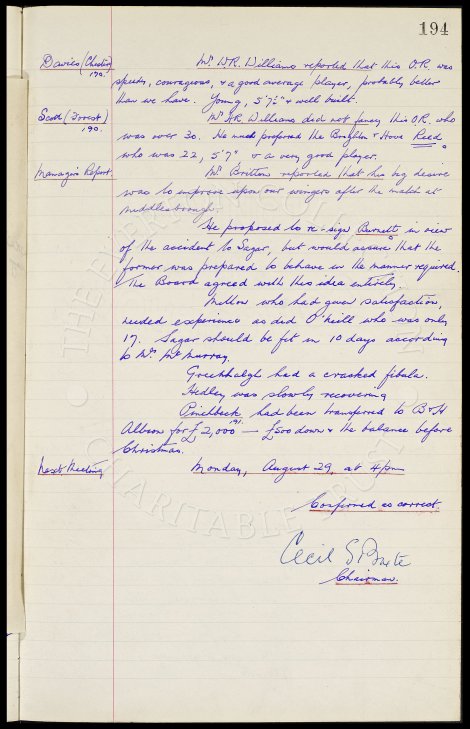 194
Davies (Chester) Mr W.R. Williams reported that this O.R. was
190.
speedy, courageous, & a good average player, probably better
than we have. Young, 5'7½" & well built.
Scott (Forrest) Mr W.R. Williams did not fancy this O.R. who
190.
was over 30. He much preferred the Brighton & Hove Reed
who was 22, 5'7" & a very good player.
Manager's Report. Mr Britton reported that his big desire
was to improve upon our wingers after the match at
Middlesbrough.
He proposed to re-sign Burnett in view
of the accident to Sagar, but would assure that the
former was prepared to behave in the manner required.
The Board agreed with this idea entirely.
Mellon who had given satisfaction,
needed experience as did O'Neill who was only
17. Sagar should be fit in 10 days according
to Mr McMurray.
Greenhalgh had a cracked fibula.
Hedley was slowly recovering
Pinchbeck had been transferred to B & H
191.
Albion for £2,000 — £500 down & the balance before
Christmas.
Next Meeting Monday, August 29, at 4pm
Confirmed as correct.
Cecil S Baxte
Chairman.
THE EVERTON COLLECTION CHARITABLE TRUST